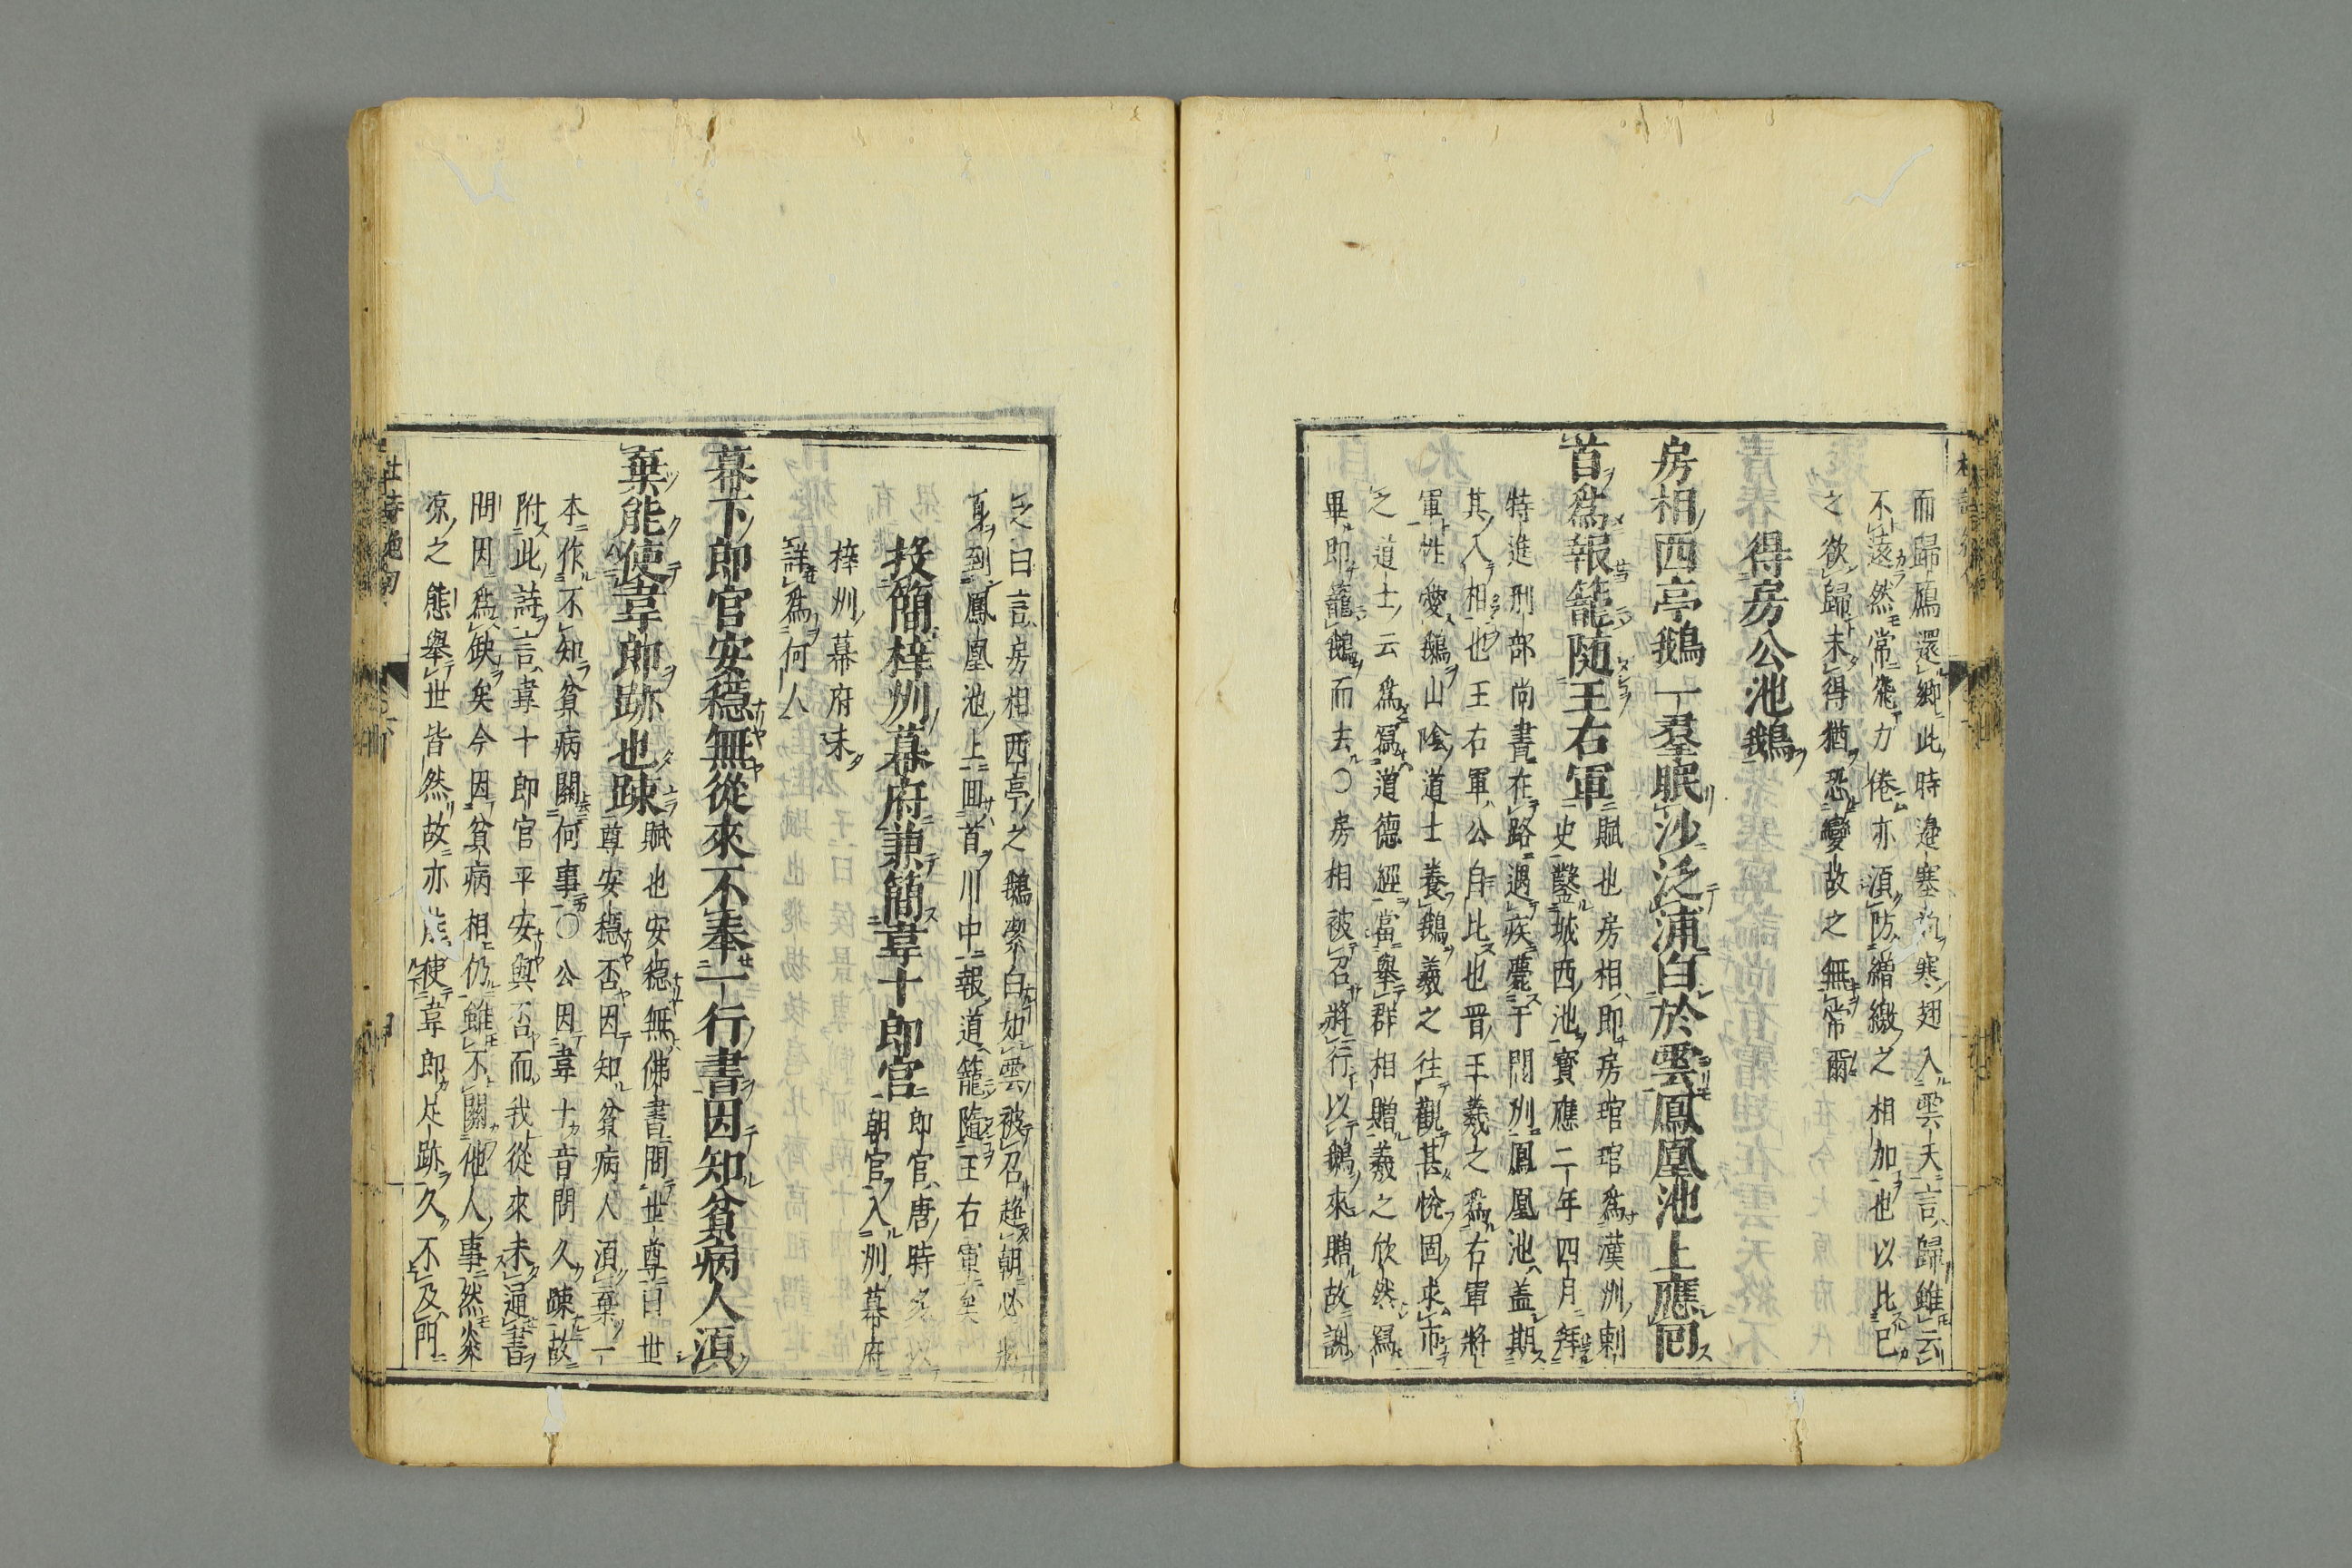 而歸鴈還郷此時邉塞尚寒翅入雲天言歸雖云
不遠然常飛力倦亦湏防繒繳之相加也以比己
之欲歸未得猶恐變故之無常爾
得房公池鵝
房相西亭鵝一羣眠沙泛浦白於雲鳳凰池上應囘
首爲報籠随王右軍
賦也房相即房琯琯爲漢州刺
史鑿城西池寳應二年四月拜
特進刑部尚書在路遇疾薨于閬州鳳凰池盖期
其入相也王右軍公自比也晋王羲之爲右軍將
軍性愛鵝山陰道士養鵝羲之往觀甚悅固求市
之道士云爲寫道德經當舉群相贈羲之欣然寫
畢即籠鵝而去〇房相被召將行以鵝來贈故謝
之曰言房相西亭之鵝潔白如雲被召趨朝必將
身到鳳凰池上囬首川中報道籠隨王右軍矣
投簡梓州幕府兼簡韋十郎官
郎官唐時多以
朝官入州幕府
梓州幕府未
詳爲何人
幕下郎官安穏無從來不奉一行書因知貧病人湏
棄能使韋郎跡也踈
賦也安穏無佛書問世尊曰世
尊安穏否因知貧病人湏棄一
本作不知貧病關何事〇公因韋十音問久踈故
附此詩言韋十郎官平安與否而我從來未通書
問因爲缺矣今因貧病相仍雖不關他人事然炎
凉之態舉世皆然故亦能使韋郎足跡久不及門
杜詩絶句